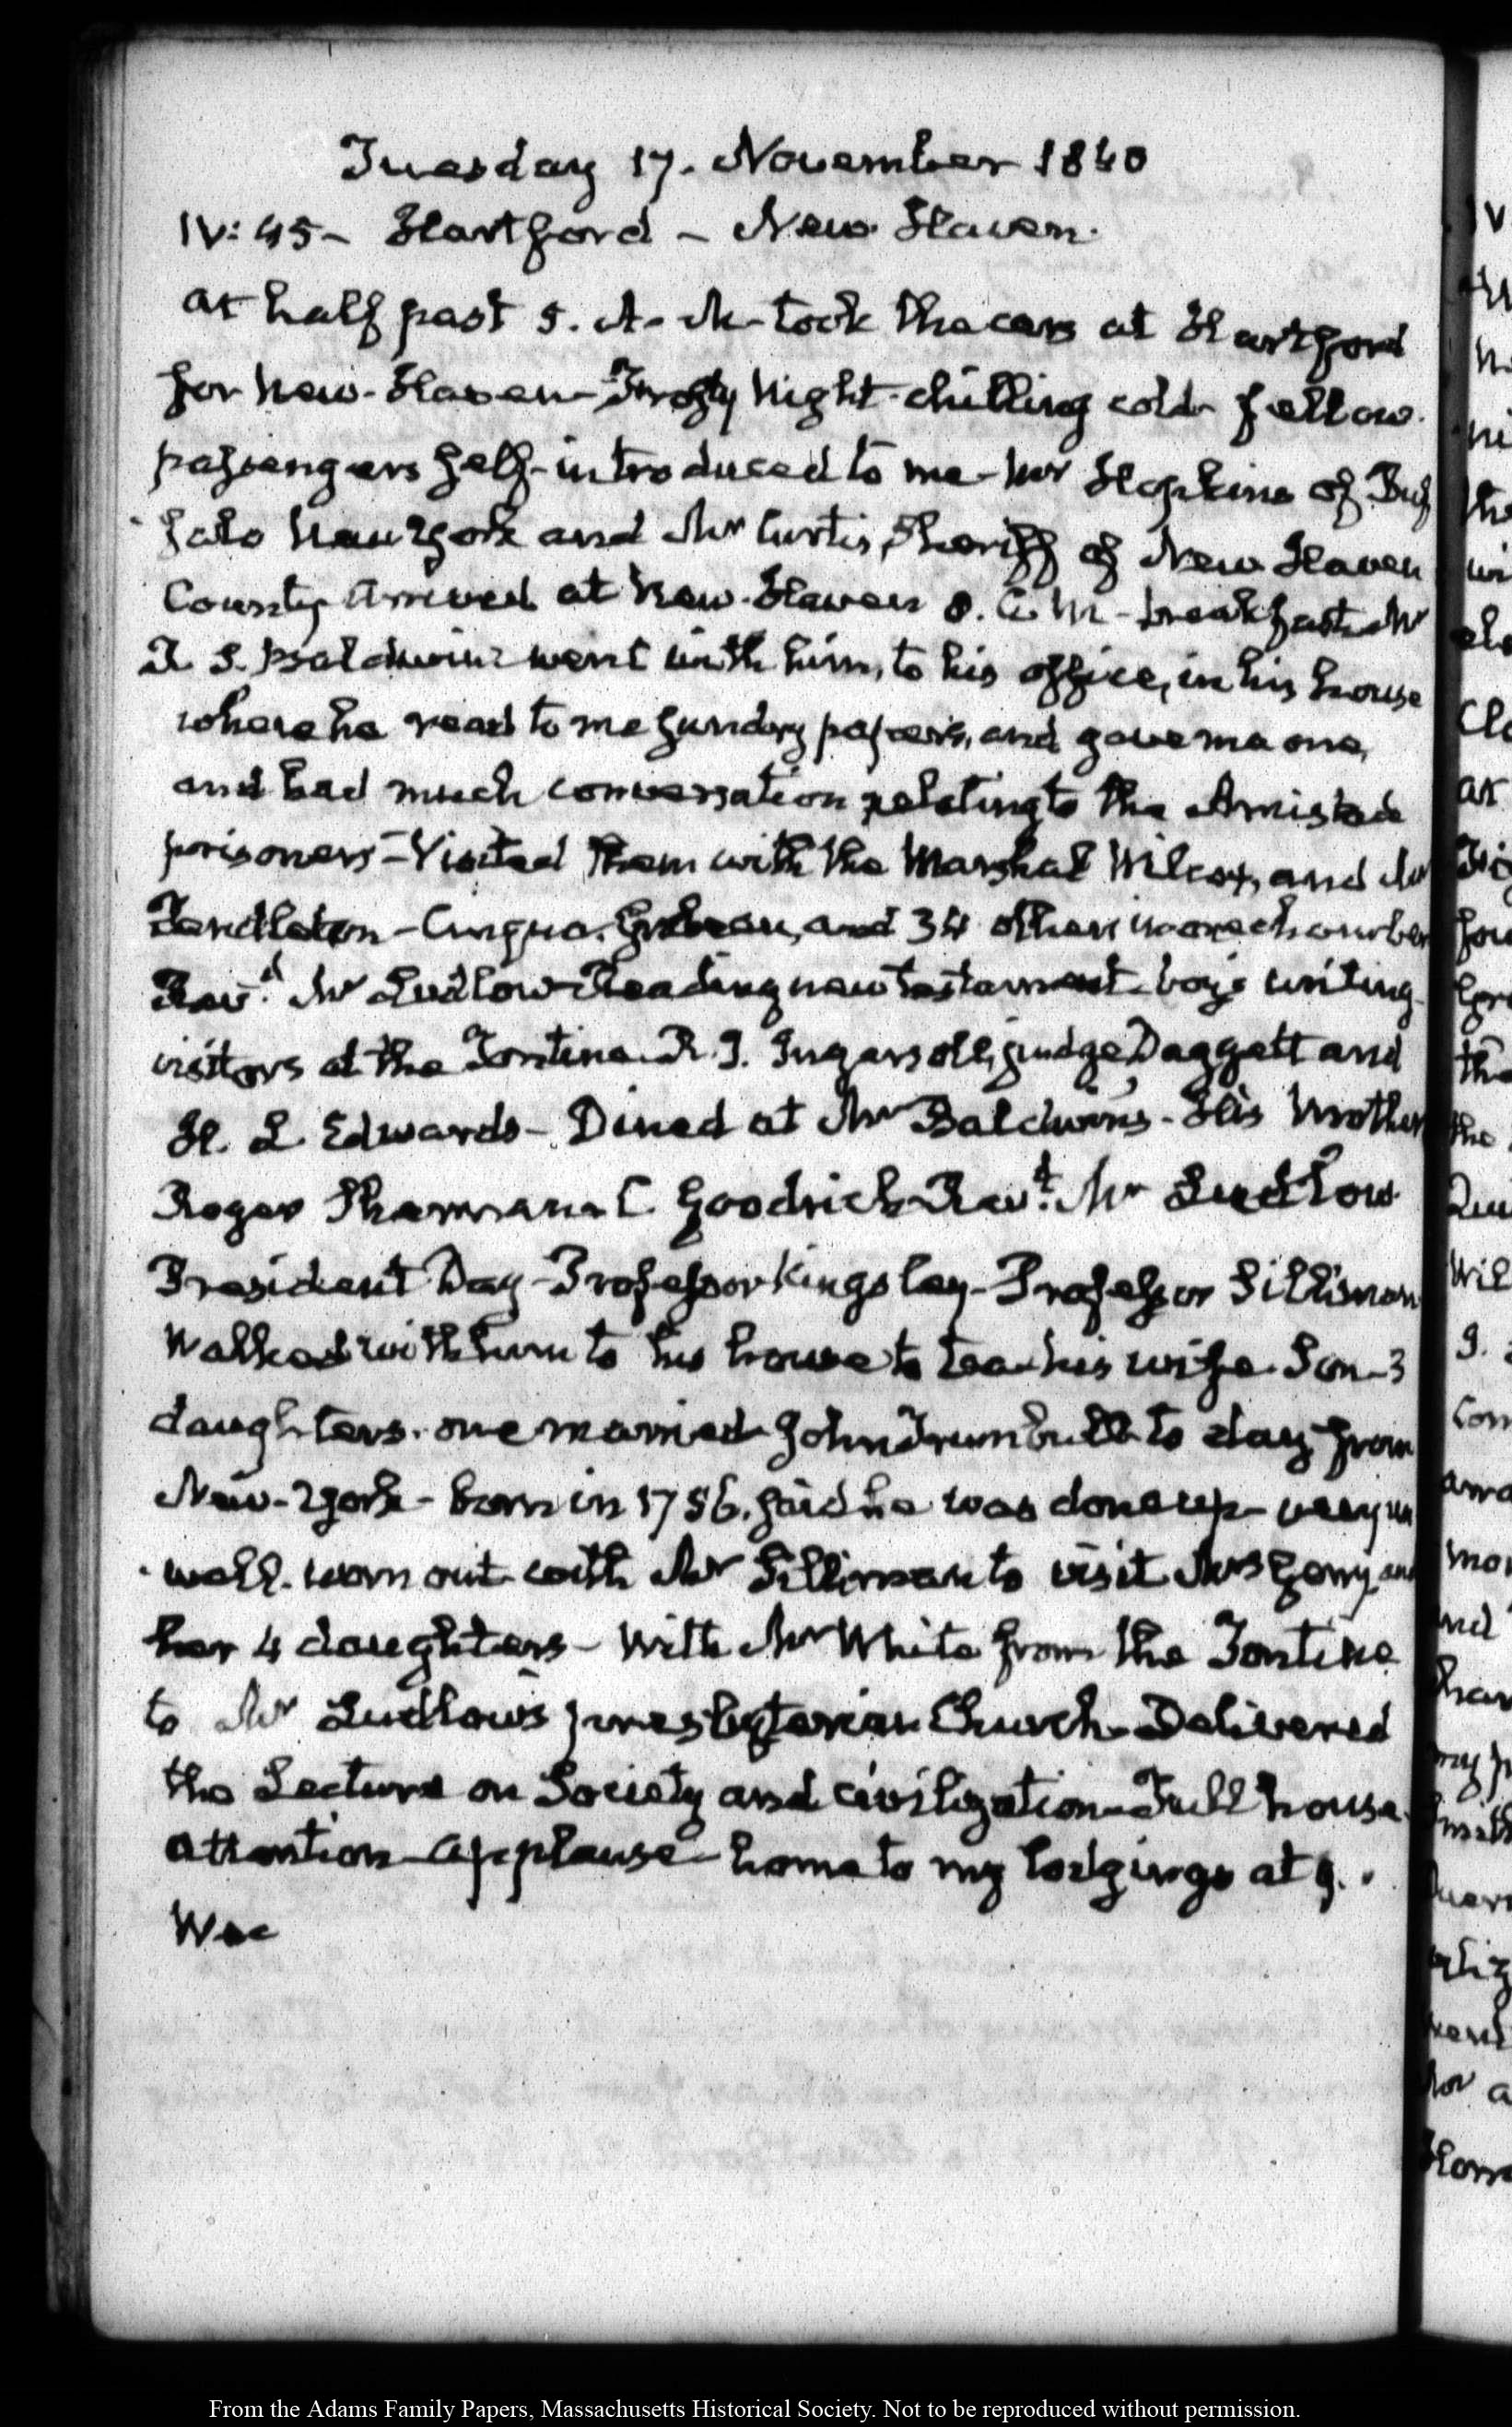 Tuesday 17. November 1840
IV: 45- Hartford - New Haven.
at half past 5. A. M- took the cars at Hartford
for New-Haven- Frosty Night- chilling cold- fellow
passengers self-introduced to me- Mr Hopkins of Buf
falo New York and Mr Curtis, Sheriff of New Haven
County Arrived at New-Haven 8. A. M- breakfast- Mr
R S. Baldwin went with him, to his office, in his house
where he read to me sundry papers, and gave me one,
and had much conversation relating to the Amistad
prisoners- Visited them with the Marshal Wilcox, and Mr
Pendleton- Cinque. Grabeau, and 34 others in one chamber
Revd. Mr Ludlow- Reading new testament- boys writing-
visitors at the Tontine. R. I. Ingersoll, judge Daggett and
H. L Edwards- Dined at Mr Baldwin's- His Mother
Roger Sherman. C Goodrich- Revd. Mr Ludlow
President Day- Professor Kingsley- Professor Silliman
Walked with him to his house to tea- his wife. Son- 3
daughters. one married- John Trumbull to day from
New-York- born in 1756. said he was done up- very un
well. worn out- with Mr Silliman to visit Mrs Gerry and
her 4 daughters- With Mr White from the Tontine
to Mr Ludlow's presbyterian Church- Delivered
the Lecture on Society and civilization- Full house
Attention- Applause- home to my lodgings at 9.